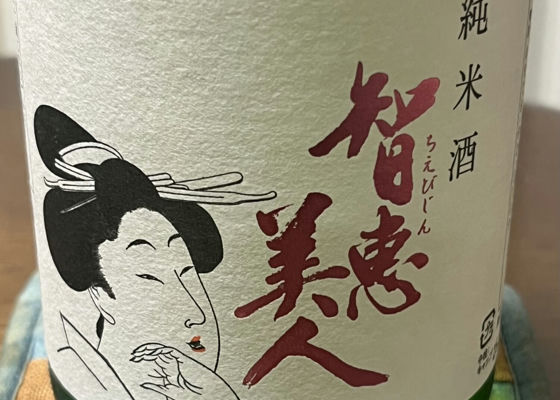 純米酒
智恵
ちえびじん
美人